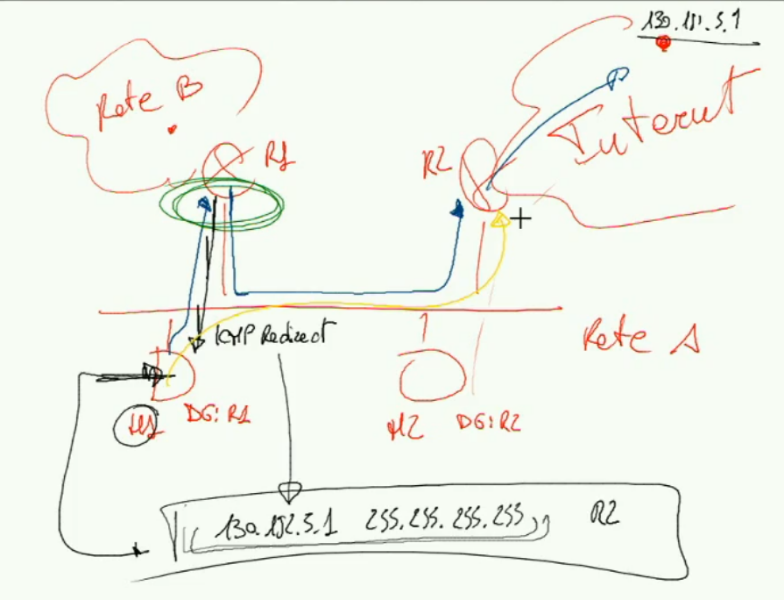 130.151.5.1
Rete B
R1
R2
Internet
ICMP Redirect
Rete A
H1
DG: R1
H2
DG: R2
130.192.5.1 255.255.255.255 R2